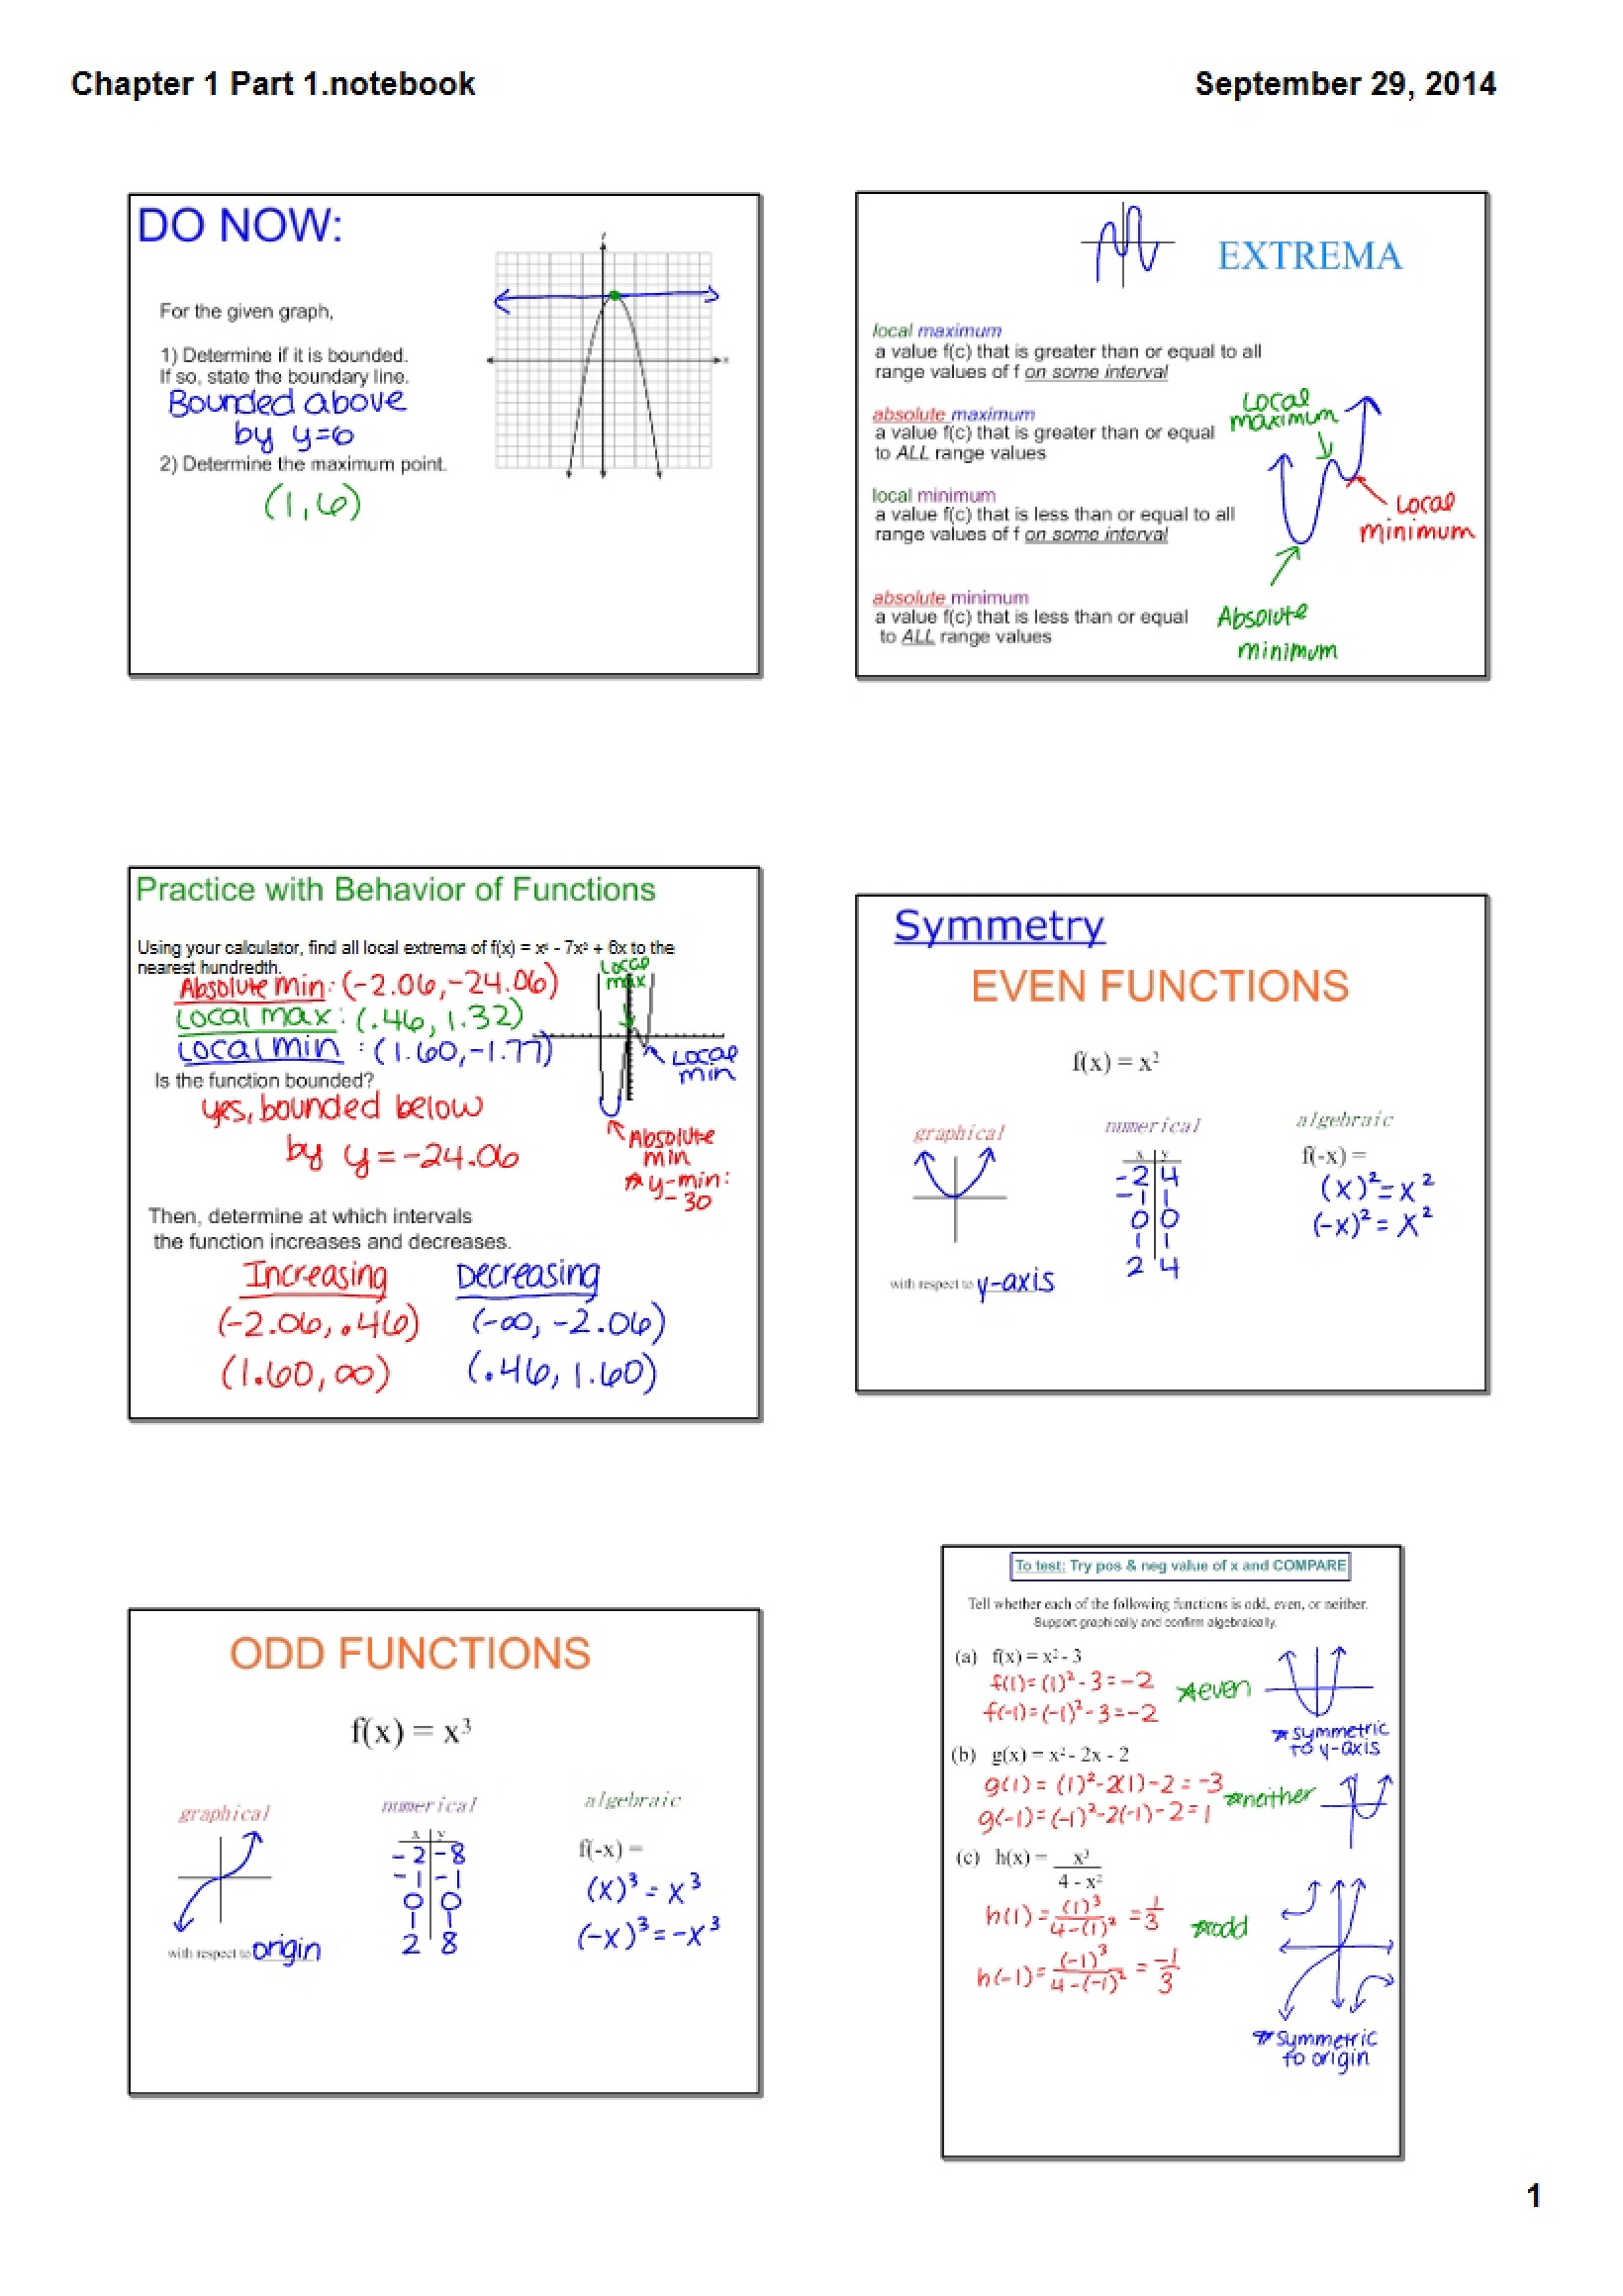 Chapter 1 Part 1.notebook
September 29, 2014
DO NOW:
For the given graph,
1) Determine if it is bounded.
If so, state the boundary line.
Bounded above
by y=6
2) Determine the maximum point.
(1,6)
y
x
EXTREMA
local maximum
a value f(c) that is greater than or equal to all
range values of f on some interval
absolute maximum
a value f(c) that is greater than or equal
to ALL range values
local minimum
a value f(c) that is less than or equal to all
range values of f on some interval
absolute minimum
a value f(c) that is less than or equal
to ALL range values
Local
maximum
Local
minimum
Absolute
minimum
Practice with Behavior of Functions
Using your calculator, find all local extrema of f(x) = x⁴ - 7x² + 6x to the
nearest hundredth.
Absolute Min: (-2.06,-24.06)
Local max: (.46, 1.32)
Local min : (1.60,-1.77)
Local
max
Local
min
Is the function bounded?
yes, bounded below
by y = -24.06
Absolute
min
*y-min:
-30
Then, determine at which intervals
the function increases and decreases.
Increasing Decreasing
(-2.06, .46) (-∞, -2.06)
(1.60, ∞) (.46, 1.60)
Symmetry
EVEN FUNCTIONS
f(x) = x²
graphical numerical algebraic
x y
-2 4
-1 1
0 0
1 1
2 4
f(-x) =
(x)²=x²
(-x)² = x²
with respect to y-axis
ODD FUNCTIONS
f(x) = x³
graphical numerical algebraic
x y
-2 -8
-1 -1
0 0
1 1
2 8
f(-x) =
(x)³ = x³
(-x)³ = -x³
with respect to origin
To test: Try pos & neg value of x and COMPARE
Tell whether each of the following functions is odd, even, or neither.
Support graphically and confirm algebraically.
(a) f(x) = x² - 3
f(1) = (1)² - 3 = -2
f(-1) = (-1)² - 3 = -2
*even
*symmetric
to y-axis
(b) g(x) = x² - 2x - 2
g(1) = (1)²-2(1)-2 = -3
g(-1) = (-1)²-2(-1)-2 = 1
*neither
(c) h(x) = x³
4 - x²
h(1) = (1)³/4-(1)² = 1/3
*odd
h(-1) = (-1)³/4-(-1)² = -1/3
*symmetric
to origin
1